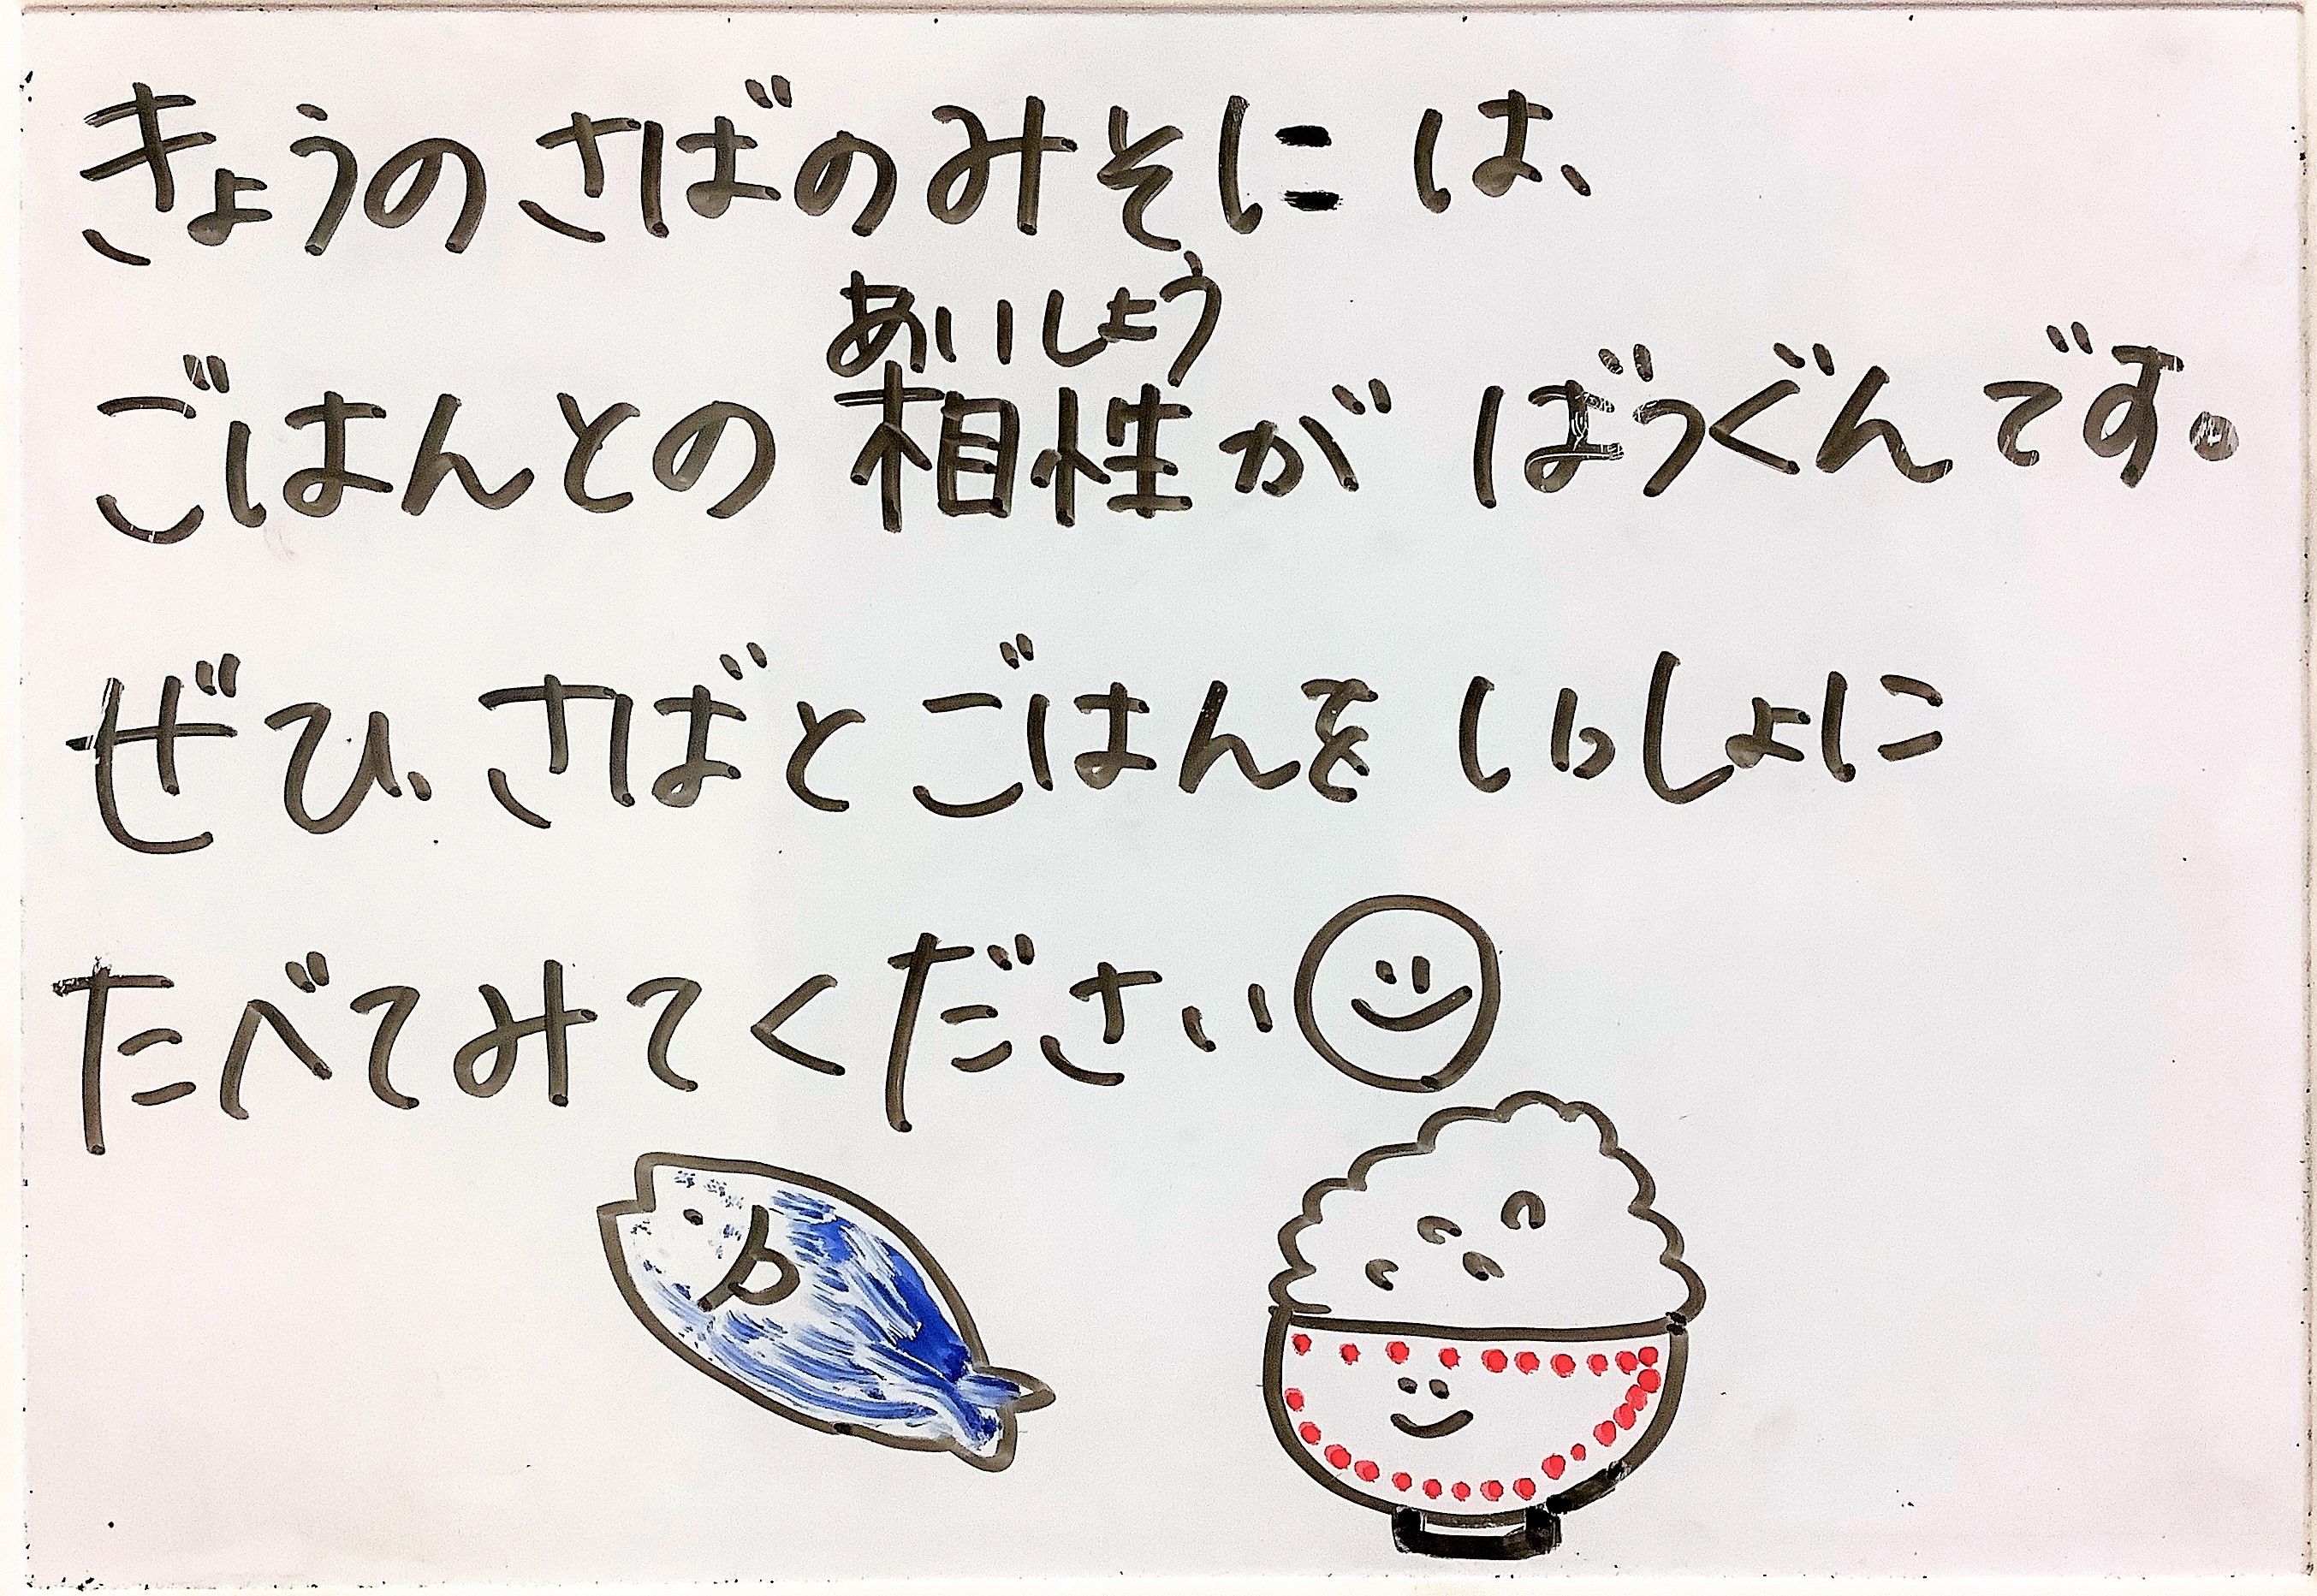 きょうの さばのみそには、
あいしょう
ごはんとの 相性が ばつぐんです。
ぜひ、さばと ごはんを いっしょに
たべてみてください